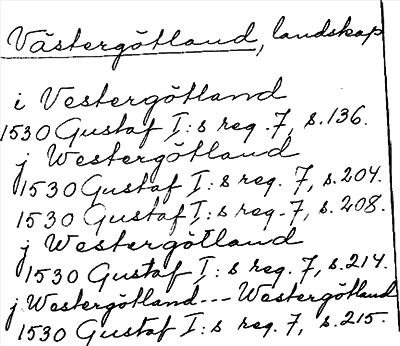 Västergötland, landskap
i Vestergötland
1530 Gustaf I:s reg. 7, s. 136.
j Westergötland
1530 Gustaf I:s reg. 7, s. 204.
1530 Gustaf I:s reg. 7, s. 208.
j Westergötland
1530 Gustaf I:s reg. 7, s. 214.
j Westergötland --- Westergötland
1530 Gustaf I:s reg. 7, s. 215.